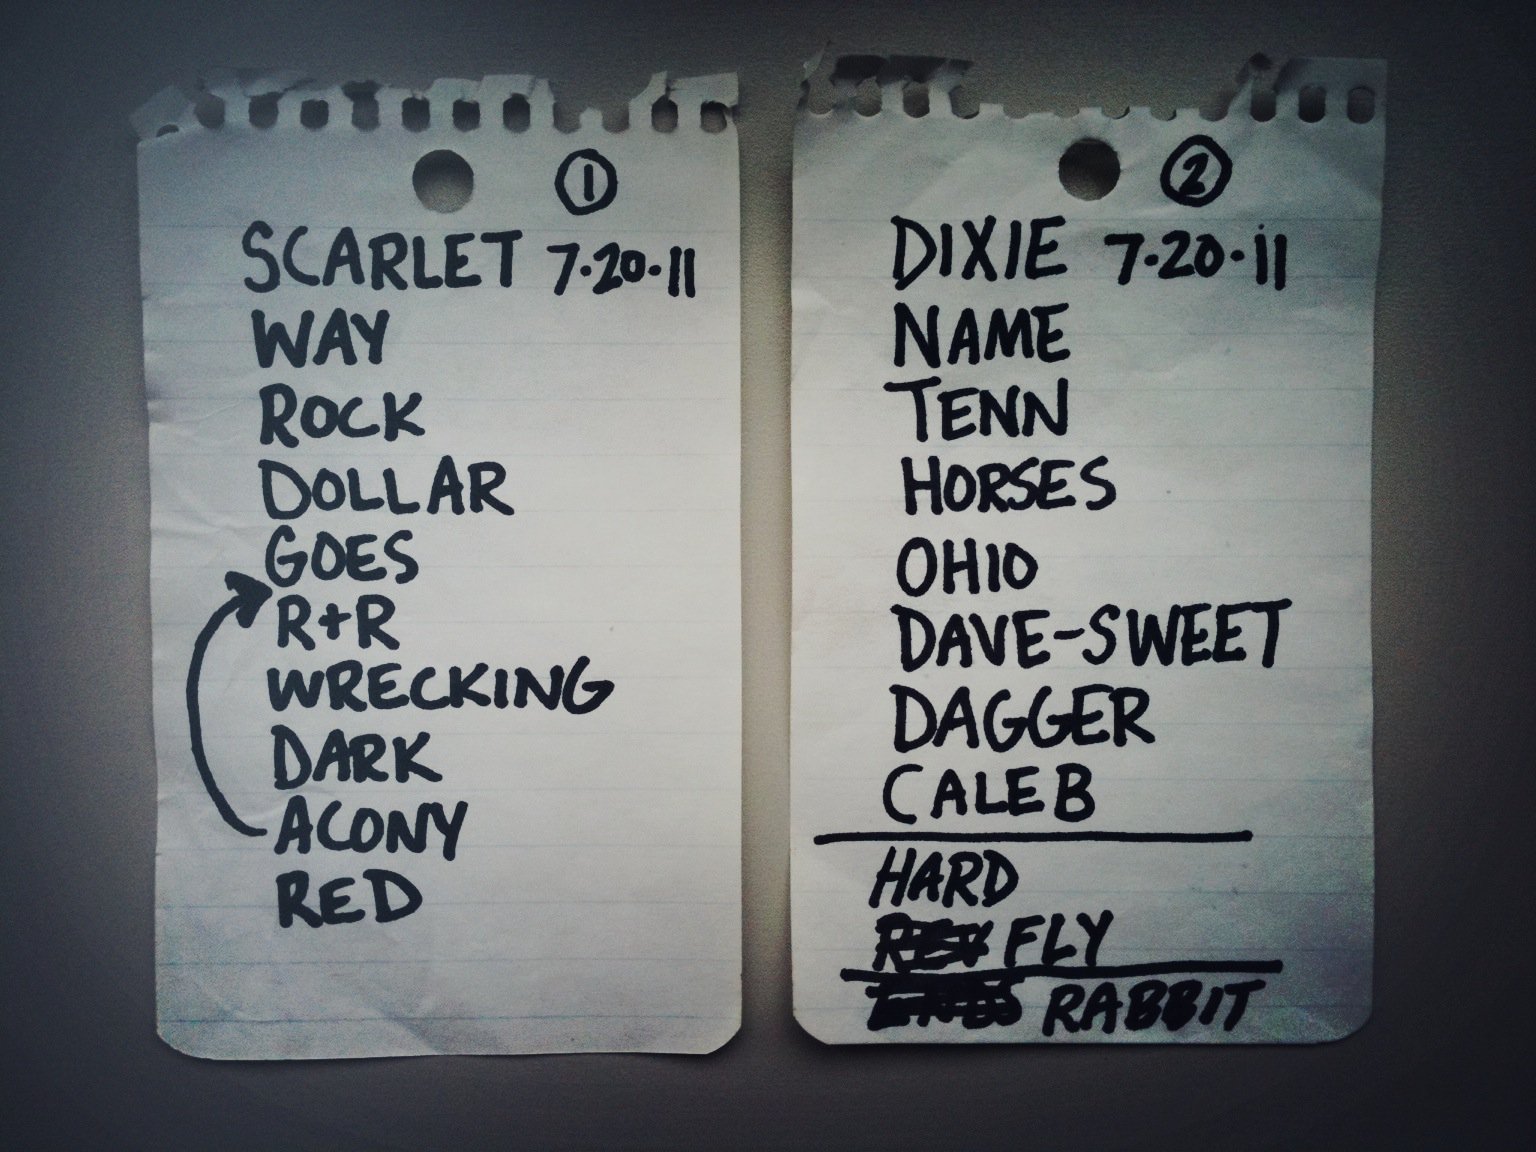 1
SCARLET 7.20.11
WAY
ROCK
DOLLAR
GOES
R+R
WRECKING
DARK
ACONY
RED
2
DIXIE 7.20.11
NAME
TENN
HORSES
OHIO
DAVE-SWEET
DAGGER
CALEB
HARD
FLY
RABBIT